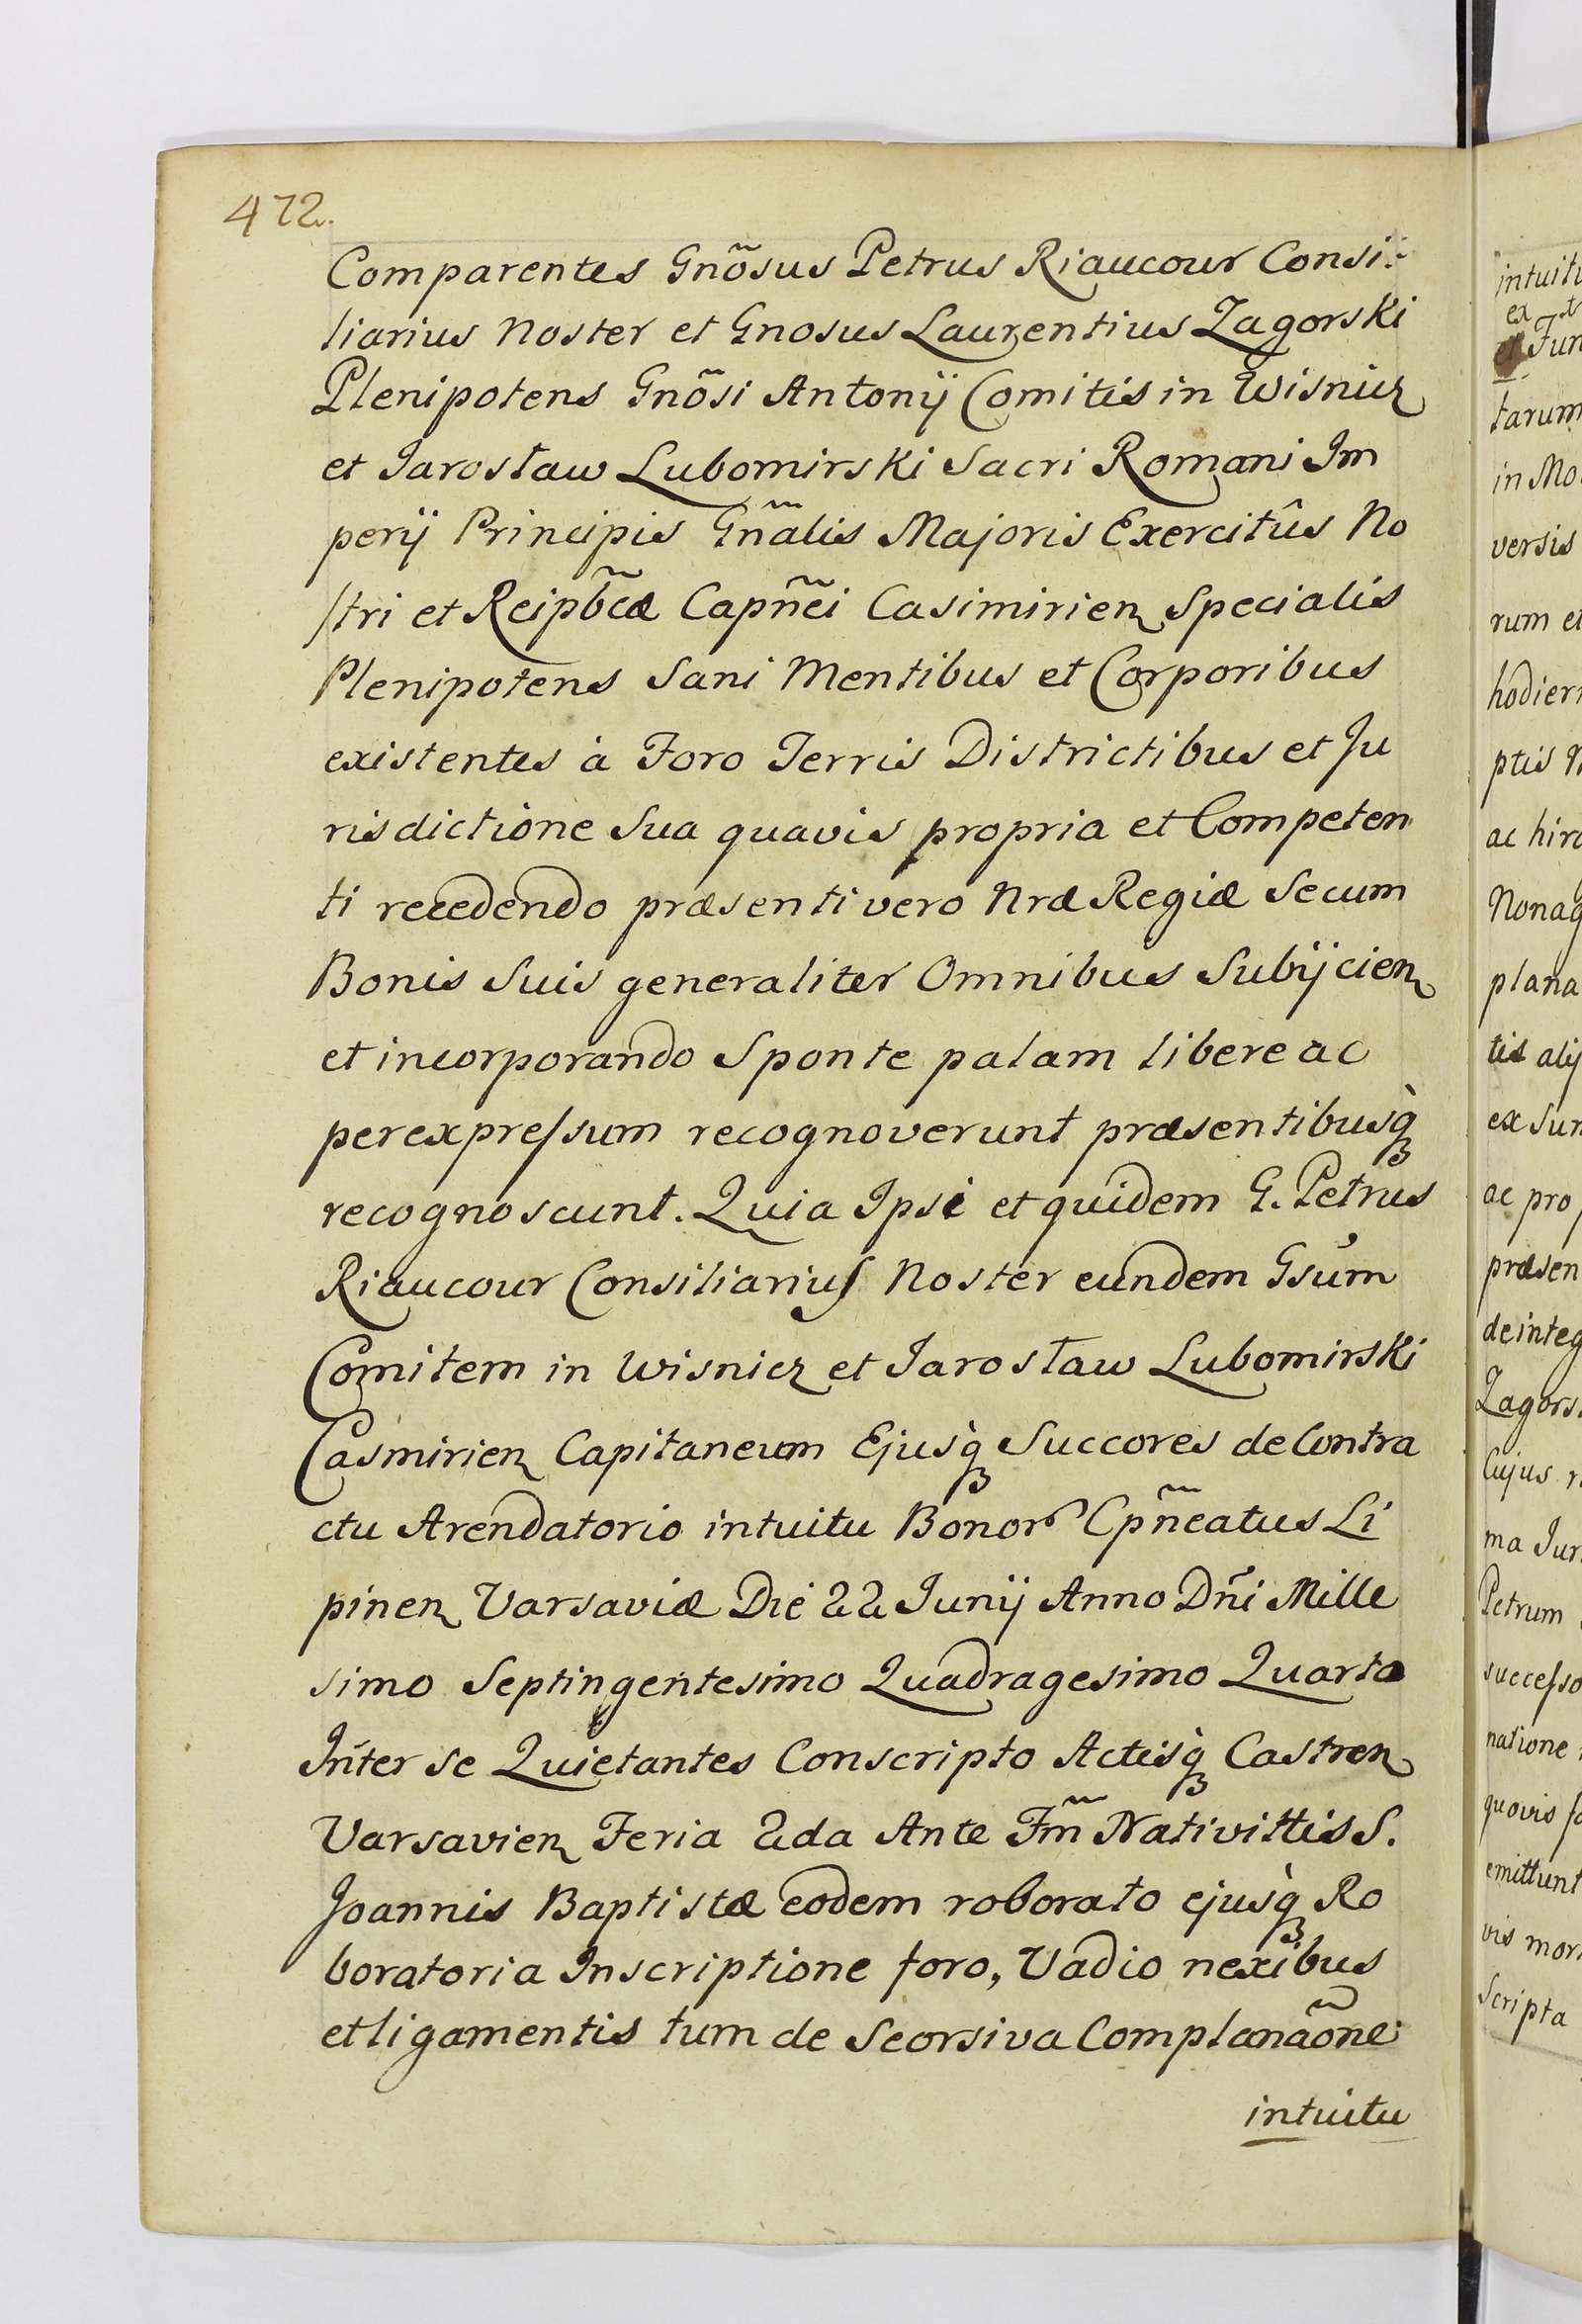 472.
Comparentes Gnõsus Petrus Riaucour Consi⹀
liarius Noster et Gnosus Laurentius Zagorski
Plenipotens Gnõsi Antonÿ Comitis in Wisnicz
et Jarosław Lubomirski Sacri Romani Im
perÿ Principis Gñalis Majoris Exercitûs No
stri et Reipb̃cæ Capñei Casimirien Specialis
Plenipotens Sani Mentibus et Corporibus
existentes à Foro Terris Districtibus et Ju
risdictione Sua quavis propria et Competen
ti recedendo præsenti vero Nræ Regiæ Secum
Bonis Suis generaliter Omnibus Subÿcien
et incorporando Sponte palam libere ac
perexpressum recognoverunt præsentibusq̀
recognoscunt. Quia Ipsi et quidem G. Petrus
Riaucour Consiliarius Noster eundem Gsum
Comitem in Wisnicz et Jarosław Lubomirski
Casmirien Capitaneum Ejusq̀ Succores de Contra
ctu Arendatorio intuitu Bonor Cpñeatus Li
pinen Varsaviæ Die 22 Junÿ Anno Dñi Mille
simo Septingentesimo Quadragesimo Quarto
Inter se Quietantes Conscripto Actisq̀ Castren
Varsavien Feria 2da Ante Fm̃ Nativittis S.
Joannis Baptistæ eodem roborato ejusq̀ Ro
boratoria Inscriptione foro, Vadio nexibus
et ligamentis tum de Seorsiva Complanaõne
intuitu
intuitu
ex
Jun
tarum
in Mo
versis
rum et
hodier
ptis
ac hir
Nonag
plana
tis alÿ
ex Sum
ac pro
præsen
de integ
Zagors
Cujus
ma Jur
Petrum
successo
natione
quovis
emittunt
vis mor
Scripta